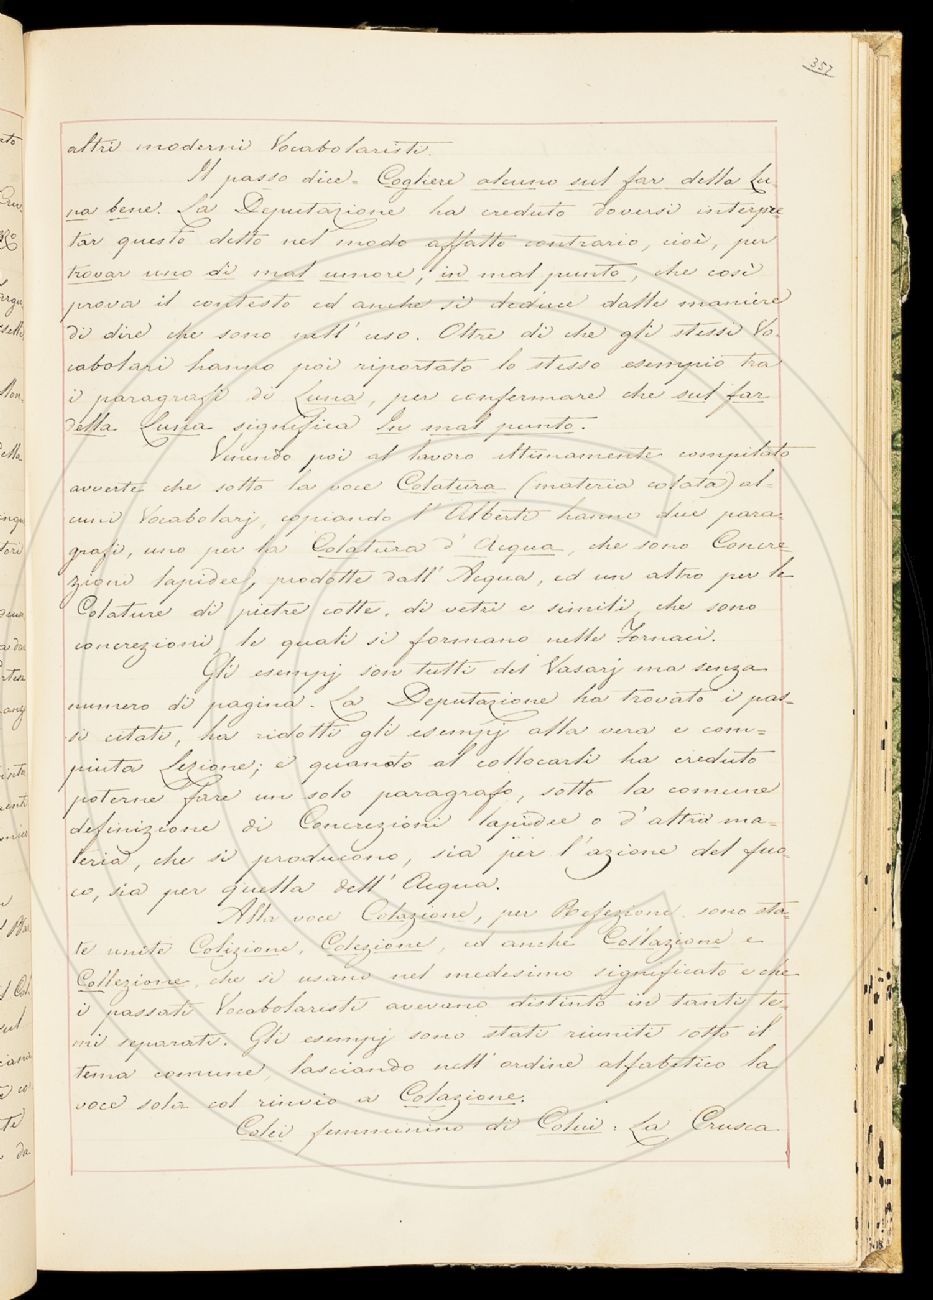 357
altri moderni Vocabolaristi.
Il passo dice = Cogliere alcuno sul far della Lu-
na bene. La Deputazione ha creduto doversi interpe-
tar questo detto nel modo affatto contrario, cioè, per
trovar uno di mal umore, in mal punto, che così
prova il contesto ed anche si deduce dalle maniere
di dire che sono nell' uso. Oltre di che gli stessi Vo-
cabolari hanno poi riportato lo stesso esempio tra
i paragrafi di Luna, per confermare che sul far
della Luna significa In mal punto.
Venendo poi al lavoro ultimamente compilato
avverte che sotto la voce Colatura (materia colata) al-
cuni Vocabolarj, copiando l' Alberti hanno due para-
grafi, uno per la Colatura d' Acqua, che sono Concre-
zioni lapidee, prodotte dall' Acqua, ed un altro per le
Colature di pietre cotte, di vetri e simili, che sono
concrezioni, le quali si formano nelle Fornaci.
Gli esempj son tutti del Vasarj ma senza
numero di pagina. La Deputazione ha trovato i pas-
si citati, ha ridotti gli esempj alla vera e com-
piuta Lezione; e quando al collocarli ha creduto
poterne fare un solo paragrafo, sotto la comune
definizione di Concrezioni lapidee o d' altra ma-
teria, che si producono, sia per l' azione del fuo-
co, sia per quella dell' Acqua.
Alla voce Colazione, per Refezione, sono sta-
te unite Colizione, Colezione, ed anche Collazione e
Collezione, che si usano nel medesimo significato e che
i passati Vocabolaristi avevano distinto in tanti te-
mi separati. Gli esempj sono stati riuniti sotto il
tema comune, lasciando nell' ordine alfabetico la
voce sola col rinvio a Colazione.
Colei femminino di Colui. La Crusca